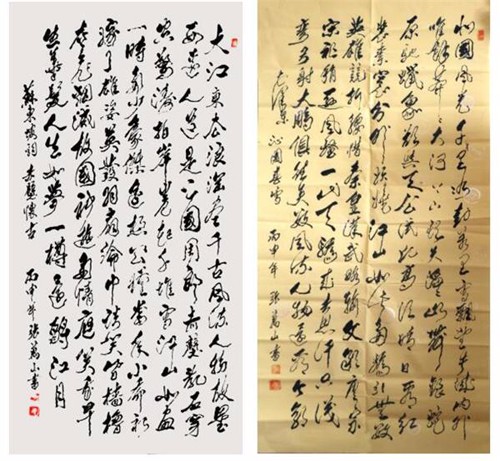 大江東去浪淘盡千古風流人物故壘
西邊人道是三國周郎赤壁亂石穿
空驚濤拍岸卷起千堆雪江山如畫
一時多少豪傑遙想公瑾當年小喬初
嫁了雄姿英發羽扇綸巾談笑間檣櫓
灰飛煙滅故國神遊多情應笑我早
生華髮人生如夢一樽還酹江月
蘇東坡詞 赤壁懷古 丙申年 張萬山書
北國風光千里冰封萬里雪飄望長城內外
惟餘莽莽大河上下頓失滔滔山舞銀蛇
原馳蠟象欲與天公試比高須晴日看紅
裝素裹分外妖嬈江山如此多嬌引無數
英雄競折腰惜秦皇漢武略輸文采唐宗
宋祖稍遜風騷一代天驕成吉思汗只識
彎弓射大鵰俱往矣數風流人物還看今朝
毛澤東 沁園春雪 丙申年 張萬山書